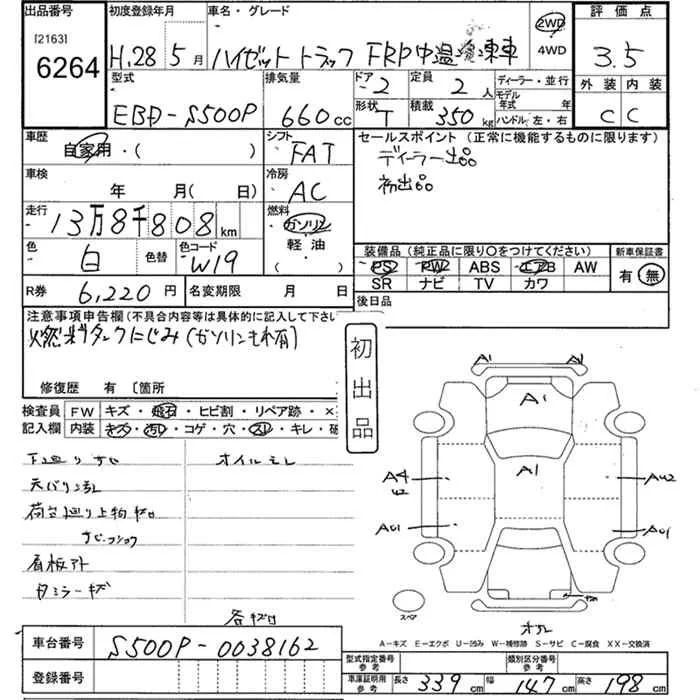 出品番号 初度登録年月 車名・グレード 評価点
[2163] 6264 H.28 5月 ハイゼットトラック FRP中温冷凍車 2WD 4WD 3.5
型式 排気量 ドア 定員 ディーラー・並行 外装 内装
EBD-S500P 660cc 2 2人 モデル年式 年 C C
形状 T 積載 350kg ハンドル 左・右
車歴 自家用・( ) シフト FAT セールスポイント (正常に機能するものに限ります)
ディーラー出品
初出品
車検 年 月( 日) 冷房 AC
走行 13万8千808km 燃料 ガソリン 軽・油 ( )
色 白 色替 色コード W19
装備品(純正品に限り○をつけてください) 新車保証書
PS PW ABS エアB AW 有 無
SR ナビ TV カワ
R券 6,220円 名変期限 月 日 後日品
注意事項申告欄(不具合内容等は具体的に記入して下さい
燃料タンクにじみ(ガソリンもれ有)
修復歴 有 〔箇所
初出品
検査員 FW キズ・飛石・ヒビ割・リペア跡・×
記入欄 内装 キズ・汚れ・コゲ・穴・スレ・キレ・破
下廻りサビ オイルモレ
天バリ汚れ
荷台廻り上物キロ
看板アト
Rミラーキズ
各キロ
A1 A1
A1
A1
A4 AU2
U2
A01 A01
スペア
A-キズ E-エクボ U-凹み W-補修跡 S-サビ C-腐食 XX-交換済
車台番号 S500P-0038162
型式指定番号 参考 類別区分番号 参考
登録番号
車庫証明用 参考 長さ 339cm 幅 147cm 高さ 198cm